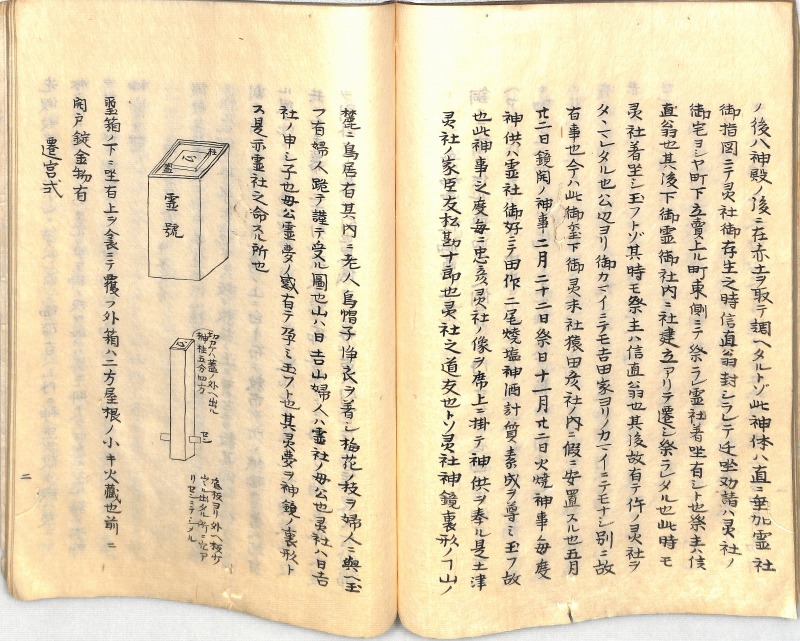 ノ後八神殿ノ後ニ在赤土ヲ取テ調ヘタルトゾ此神体ハ直ニ垂加霊社
御指図ニテ灵社御存生之時信直翁封シラレテ 坐勧請ハ灵社ノ
御宅ヨシヤ町下立賣上ル町東側ニテ祭ラレ霊社着坐有シト也祭主ハ信
直翁也其後下御霊御社内ニ社建立アリテ遷シ祭ラレタル也此時モ
灵社着坐シ玉フトゾ其時モ祭主ハ信直翁也其後故有テ件ノ灵社ヲ
タヽマレタル也公辺ヨリ御カマイニテモ吉田家ヨリノカマイニテモナシ別ニ故
有事也今ハ此御璽下御灵末社猿田彦社ノ内ニ假ニ安置スル也五月
廿二日鏡開ノ神事二月二十二祭日十一月廿二日火焼神事毎度
神供ハ霊社御好ニテ田作二尾焼塩神酒計質素成ヲ尊ミ玉フ故
也此神事之度毎ニ忠彦灵社ノ像ヲ席上ニ掛テ神供ヲ奉ル是土津
灵社ノ家臣友松勘十郎也灵社之道友也トソ灵社神鏡裏形ノヿ山ノ
麓ニ鳥居有其内ニ老人烏帽子浄衣ヲ着シ梅花ノ枝ヲ婦人ニ與ヘ玉
フ有婦人跪テ謹テ受ル圖也山ハ日吉山婦人ハ霊社ノ母公也灵社ハ日吉
社ノ申シ子也母公霊夢ノ感有テ孕ミ玉フト也其灵夢ヲ神鏡ノ裏形ト
ス是亦霊社之命スル所也
心
霊號
切カケハ蓋ノ外ヘ出ル
神柱五分四方
心
セン
底板ヨリ外ヘ
出タル所ニ穴ア
リセンニテシメル
璽箱ノ下ニ坐有上ヲ ニテ覆フ外箱ハ二方屋根ノ小キ火蔵也前ニ
開戸錠金物有
遷宮式
二